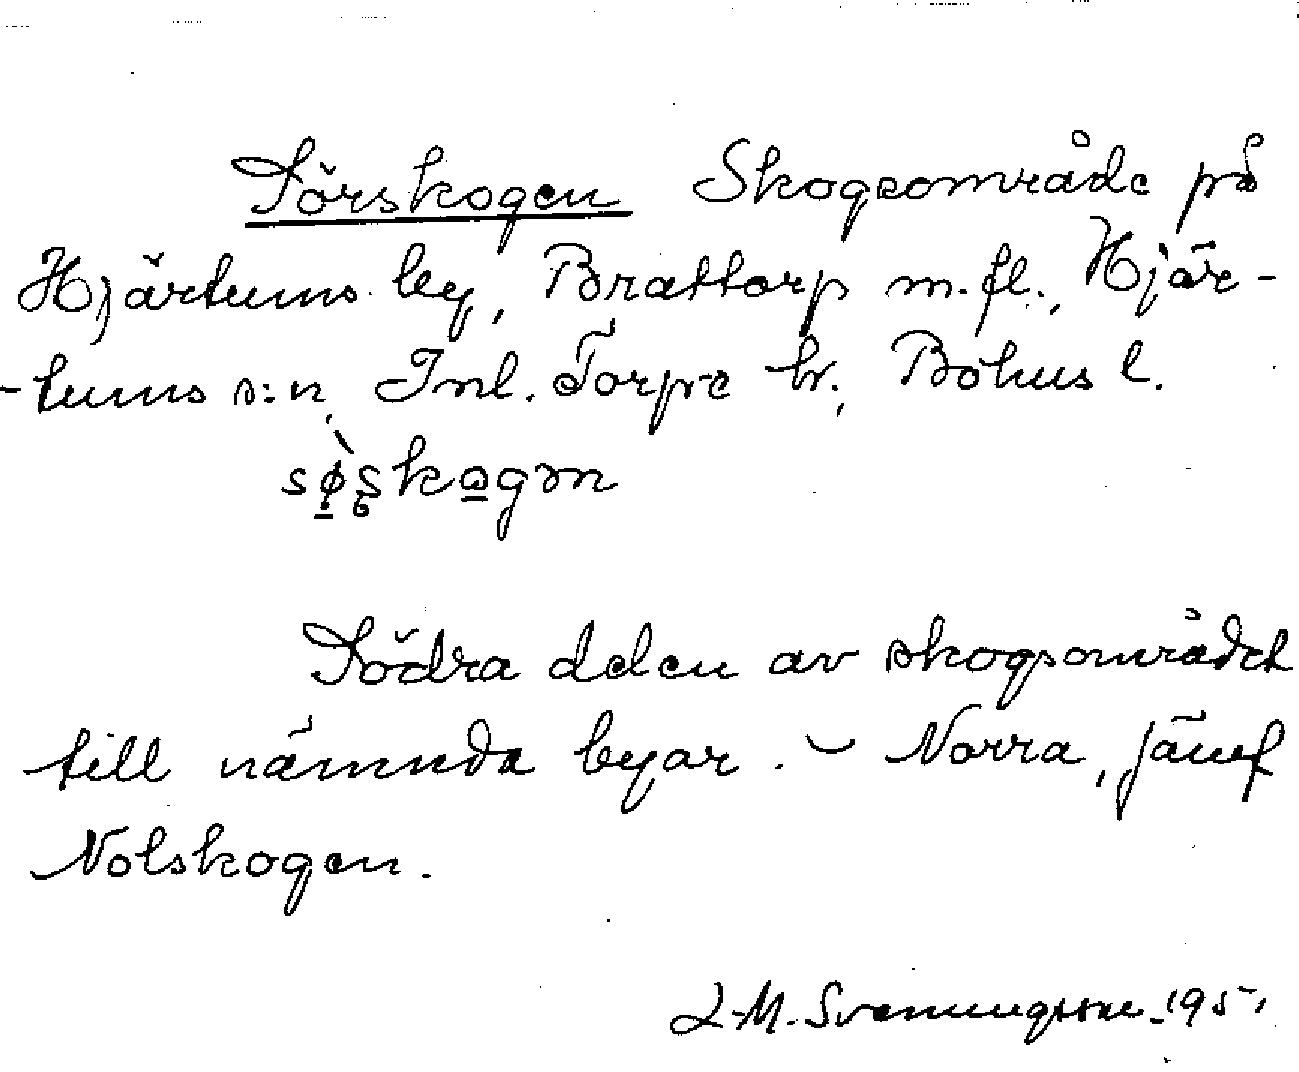 Sörskogen Skogsområde på
Hjärtums by, Brattorp m.fl., Hjär-
-tums s:n, Inl. Torpe hr., Bohus l.
sø̀ʂkogən
Södra delen av skogsområdet
till nämnda byar. – Norra, jämf
Nolskogen.
L-M. Svenningsson 1951